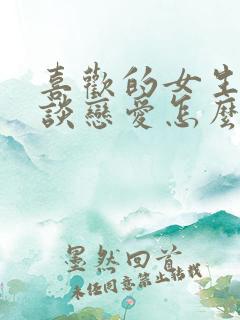 喜歡的女生
談戀愛怎麼
墨然回首
未任同意禁止转载